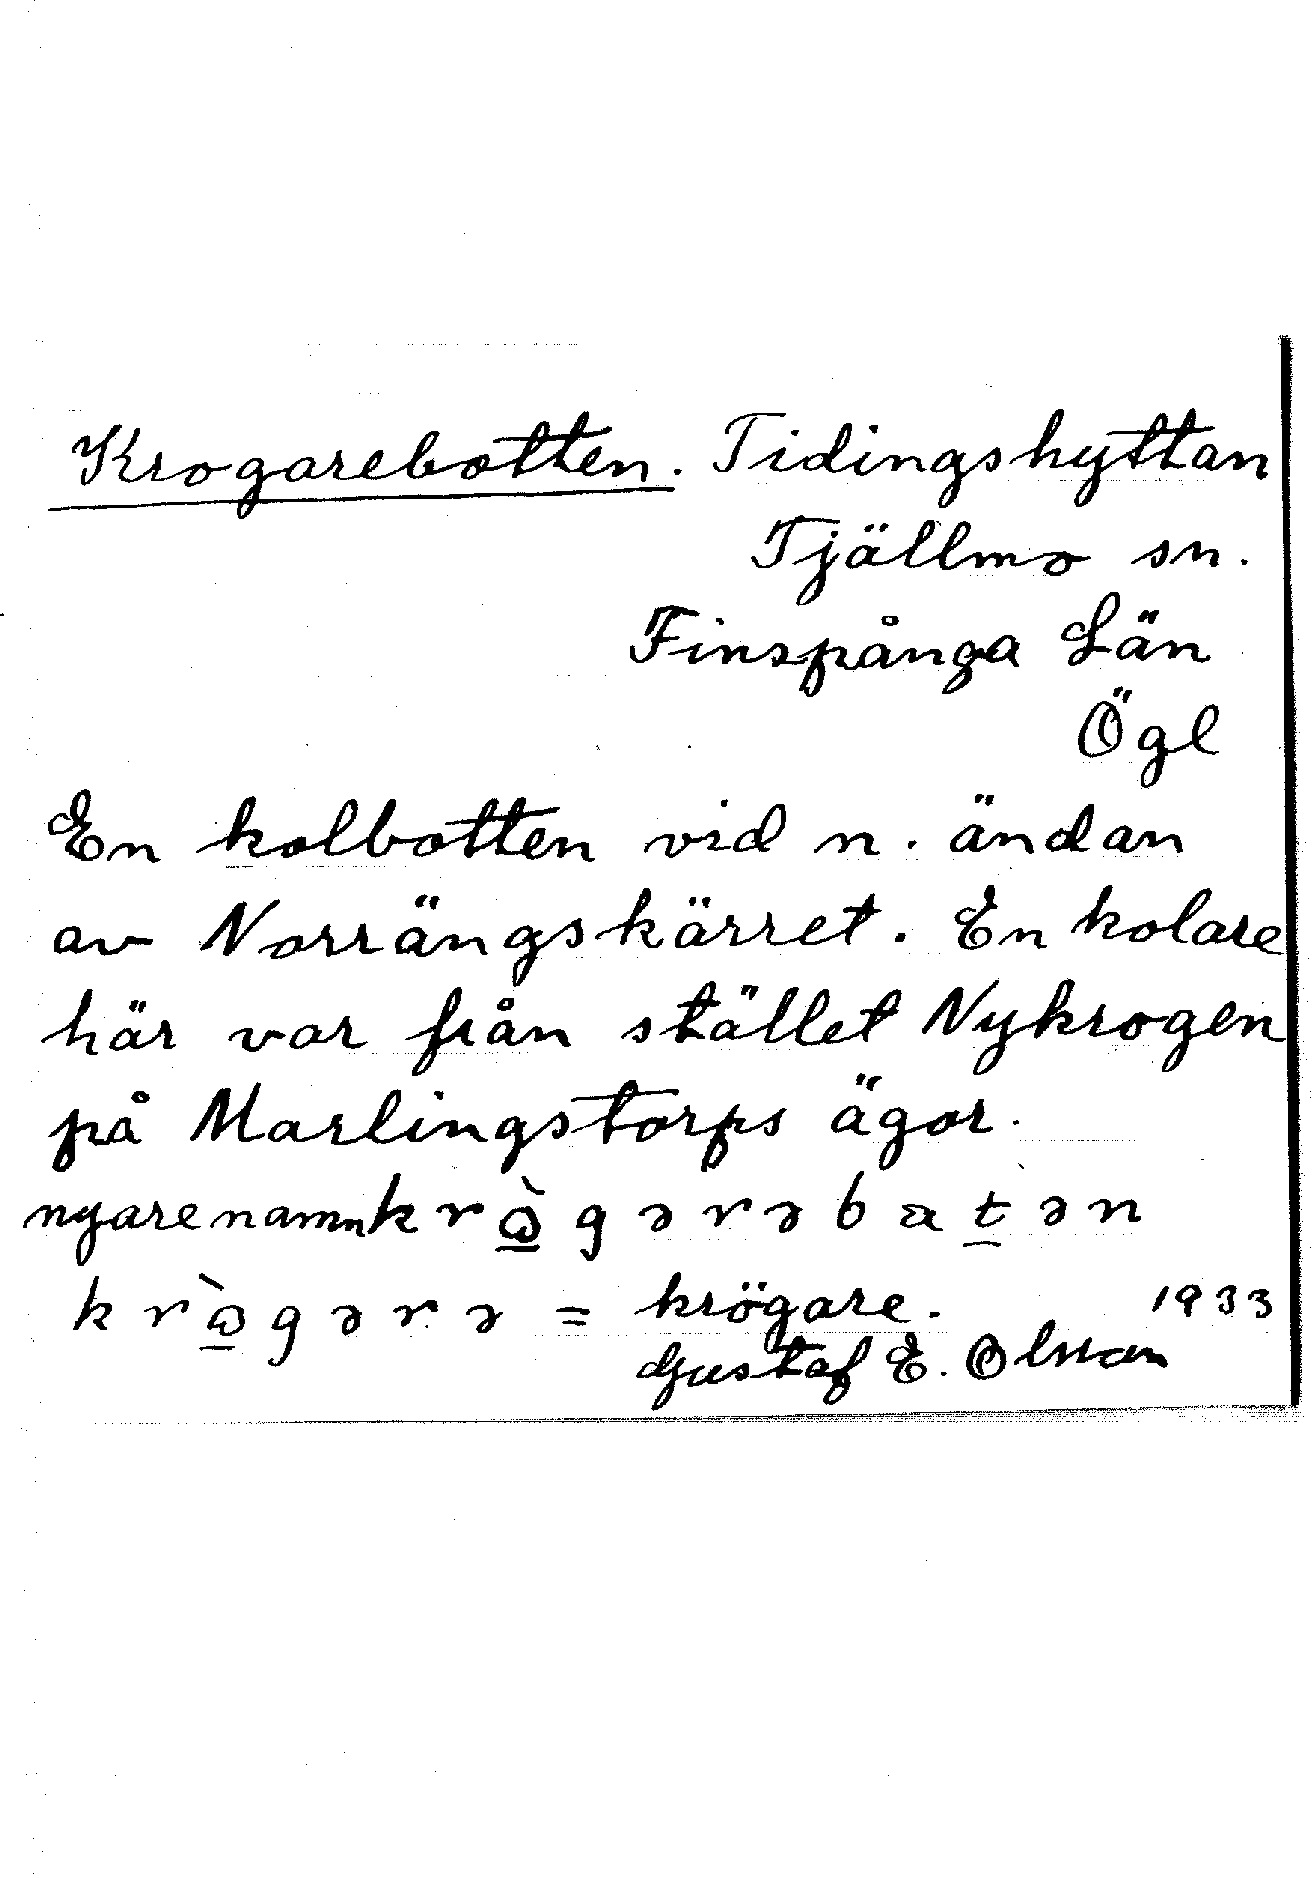 Krogarebotten. Tidingshyttan
Tjällmo sn.
Finspånga Län
Ögl
En kolbotten vid n. ändan
av Norrängskärret. En kolare
här var från stället Nykrogen
på Marlingstorps ägor.
nyare namn krɷ̲̀gərəbatə̲n
krɷ̲̀gərə = krögare. 1933
Gustaf E. Olsson